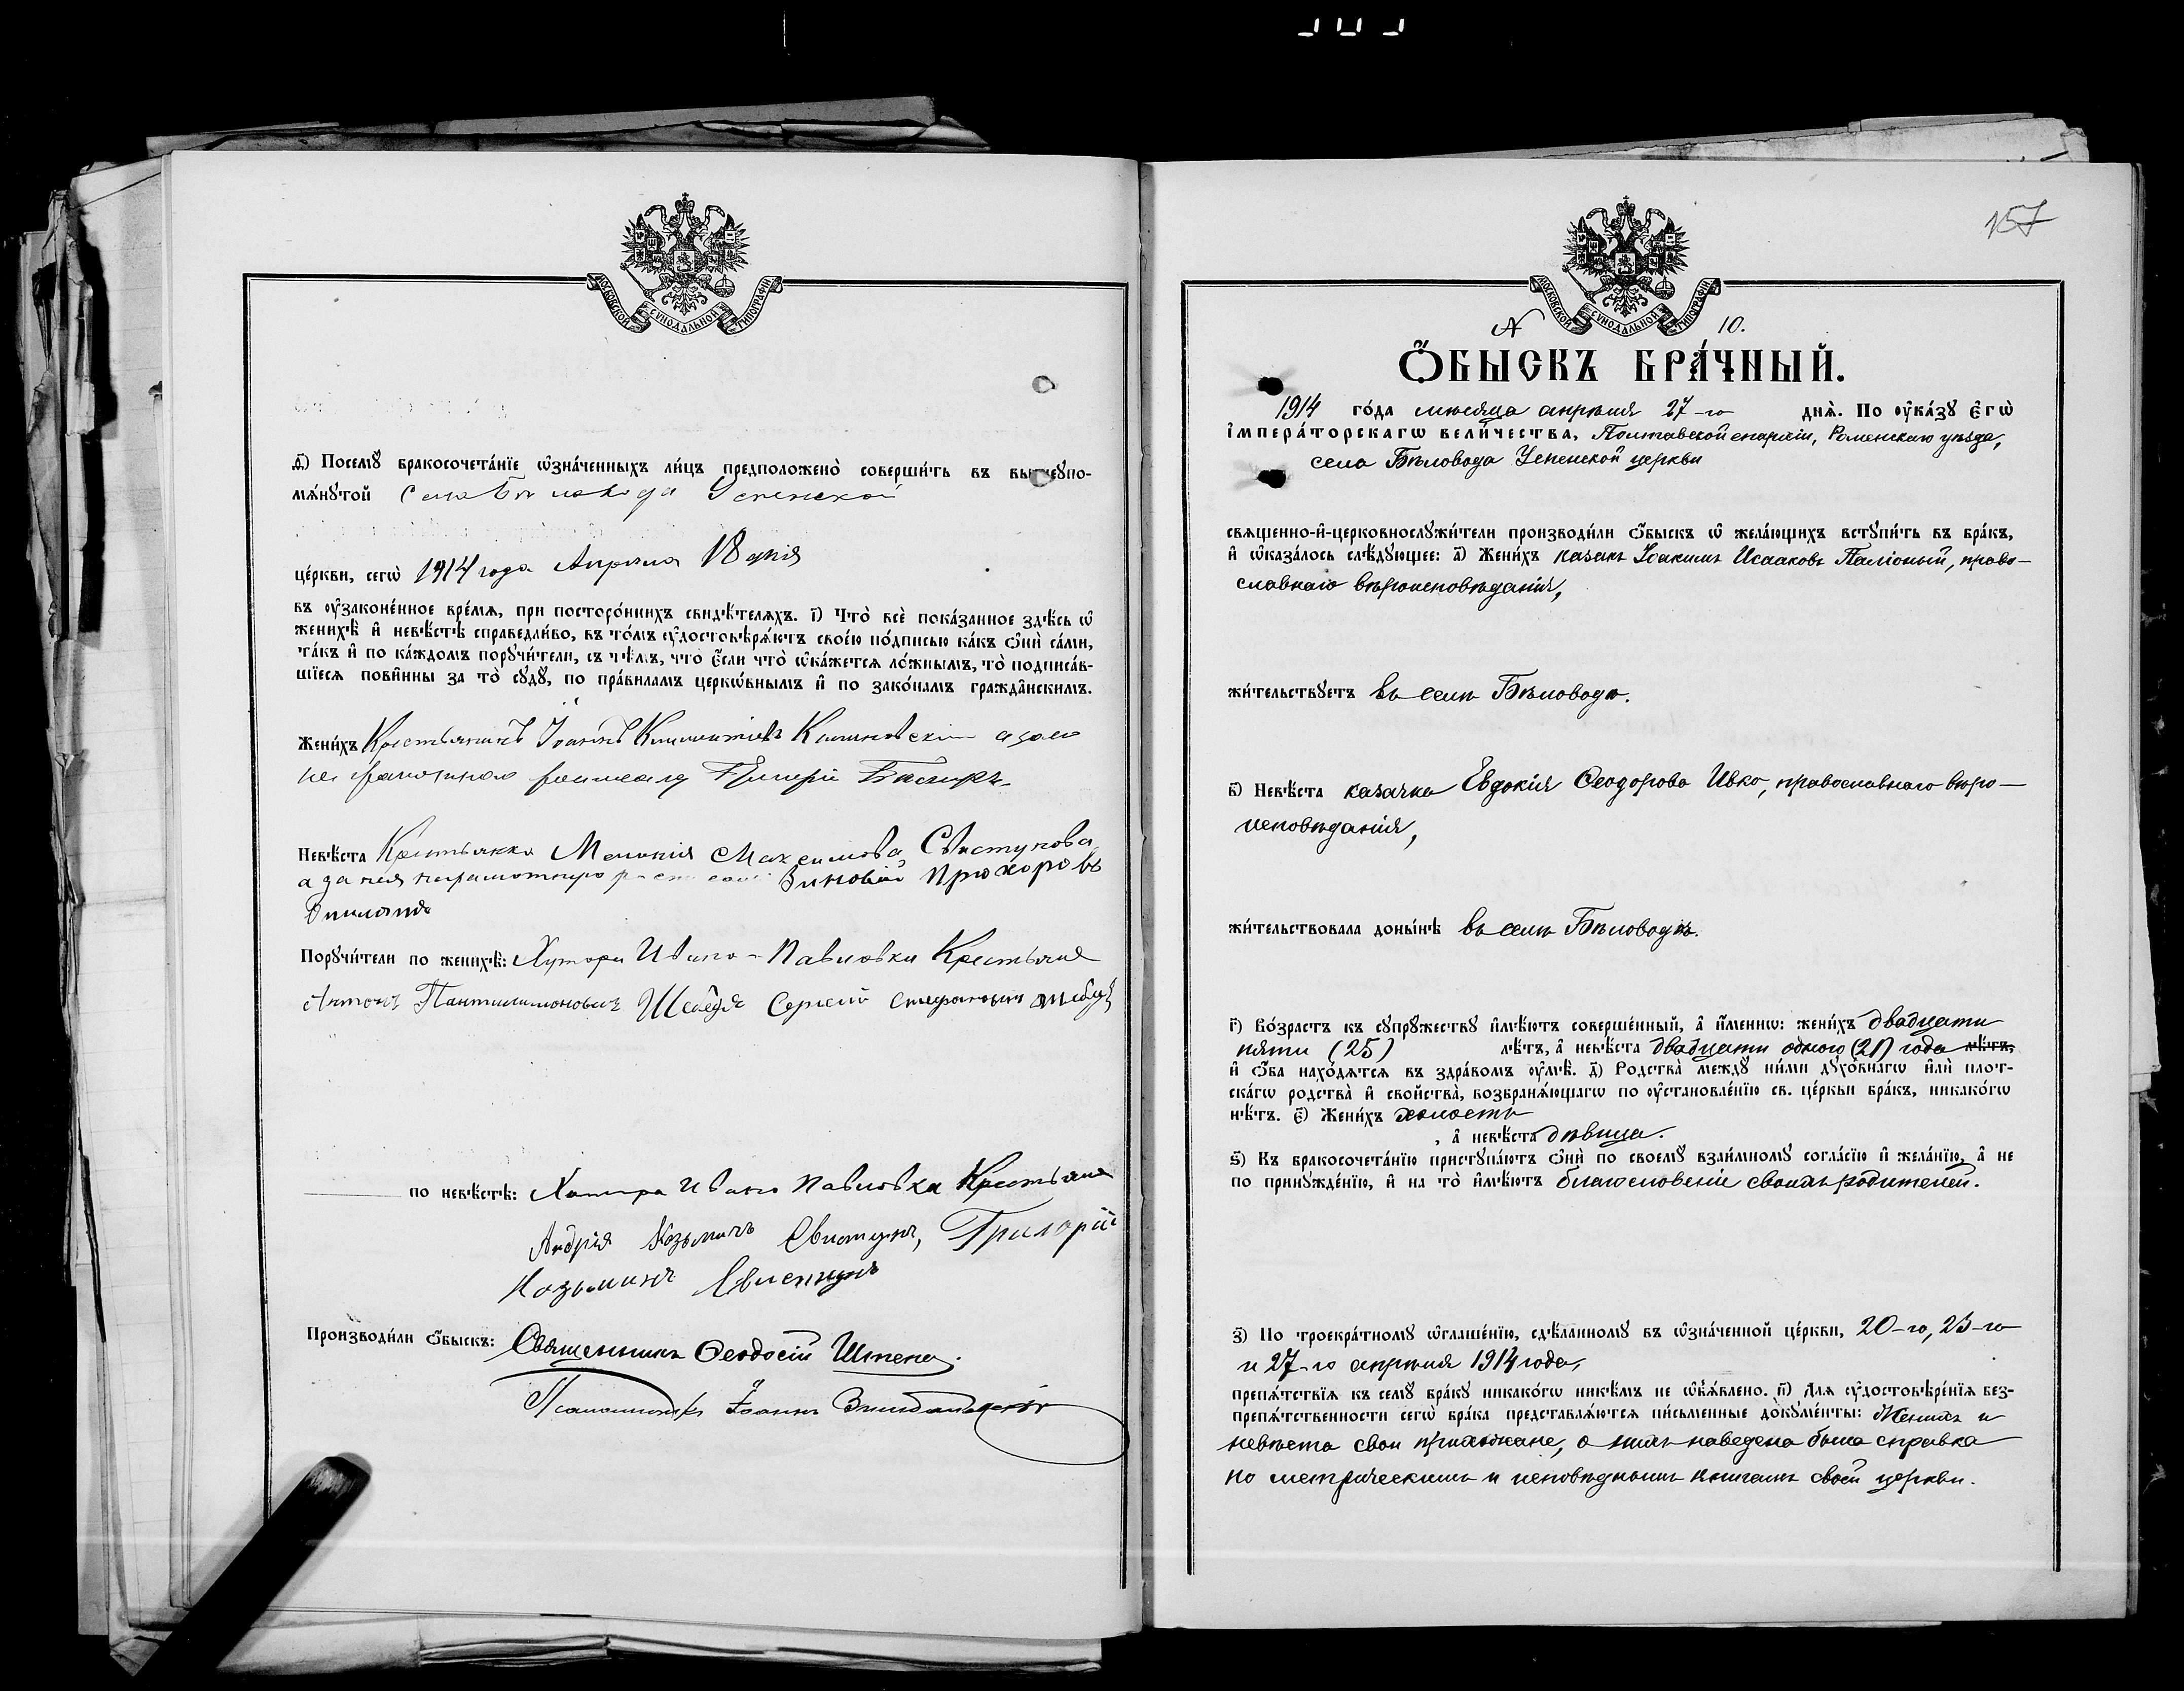 МОСКОВСКОЙ СѴНОДАЛЬНОЙ ТИПОГРАФІИ
ѳ҃) Посемꙋ̀ бракосочета́нїе ѡ҆зна́ченныхъ ли́цъ предположено̀ соверши́ть въ вышеꙋпо-
мѧ́нꙋтой села Бѣловода Успенской
це́ркви, сегѡ̀ 1914 года Апрѣля 18 дня
въ ᲂу҆зако́ненное вре́мѧ, при посторо́ннихъ свидѣ́телѧхъ. і҃) Что̀ всѐ пока́занное здѣ́сь ѡ҆
женихѣ̀ и҆ невѣ́стѣ справедли́во, въ то́мъ ᲂу҆достовѣрѧ́ютъ свое́ю по́дписью ка́къ ѻ҆нѝ са́ми,
та́къ и҆ по ка́ждомъ порꙋчи́тели, съ тѣ́мъ, что є҆́сли что̀ ѡ҆ка́жетсѧ ло́жнымъ, то̀ подписа́в-
шїесѧ пови́нны за то̀ сꙋдꙋ̀, по пра́виламъ церкѡ́внымъ и҆ по зако́намъ гражда́нскимъ.
Жени́хъ Крестьянинъ Іоаннъ Климентіевъ Калиновскій а за него
неграмотнаго росписался
Невѣ́ста Крестьянка Меланія Максимова Свистунова,
а за нея неграмотную Зиновій Прохоровъ
Порꙋчи́тели по женихѣ̀: Хутора Ивано-Павловки Крестьяне
Антонъ Пантилимоновичъ Шебедя Сергій Стефановичъ
по невѣ́стѣ: Хутора Ивано Павловки Крестьяне
Андрія Козьмичъ Свистунъ, Григорій
Козьминъ Свистунъ
Производи́ли ѻ҆́быскъ: Священникъ Ѳеодосій
Псаломщикъ Іоаннъ
157
МОСКОВСКОЙ СѴНОДАЛЬНОЙ ТИПОГРАФІИ
№ 10.
Ѻ҆́БЫСКЪ БРА́ЧНЫЙ.
1914 го́да мѣсяца апрѣля 27-го днѧ̀. По ᲂу҆ка́зꙋ Є҆гѡ̀
І҆мпера́торскагѡ вели́чества, Полтавской епархіи, Роменскаго уѣзда,
села Бѣловода Успенской церкви
свѧщенно-и҆-церковнослꙋжи́тели производи́ли ѻ҆́быскъ ѡ҆ жела́ющихъ встꙋпи́ть въ бра́къ,
и҆ ѡ҆каза́лось слѣ́дꙋющее: а҃) Жени́хъ казакъ Іоакимъ Исааковъ Паліоный, право-
славнаго вѣроисповѣданія,
жи́тельствꙋетъ въ селѣ Бѣловодѣ.
в҃) Невѣ́ста казачка Евдокія Ѳеодорова Ивко, православнаго вѣро-
исповѣданія,
жи́тельствовала донынѣ въ селѣ Бѣловодѣ.
г҃) Во́зрастъ къ сꙋпрꙋ́жествꙋ и҆мѣ́ютъ соверше́нный, а҆ и҆́меннѡ: жени́хъ двадцати
пяти (25) лѣ́тъ, а҆ невѣ́ста двадцати одного (21) года лѣ́тъ,
и҆ ѻ҆́ба нахо́дѧтсѧ въ здра́вомъ ᲂу҆мѣ̀. д҃) Родства̀ междꙋ̀ ни́ми дꙋхо́внагѡ и҆лѝ плот-
ска́гѡ родства̀ и҆ свойства̀, возбранѧ́ющагѡ по ᲂу҆становле́нїю св. це́ркви бра́къ, никако́гѡ
нѣ́тъ. є҃) Жени́хъ холостъ
, а҆ невѣ́ста дѣвица.
ѕ҃) Къ бракосочета́нїю пристꙋпа́ютъ ѻ҆нѝ по своемꙋ̀ взаи́мномꙋ согла́сїю и҆ жела́нїю, а҆ не
по принꙋжде́нїю, и҆ на то̀ и҆мѣ́ютъ благословеніе своихъ родителей.
з҃) По троекра́тномꙋ ѡ҆глаше́нїю, сдѣ́ланномꙋ въ ѡ҆зна́ченной це́ркви, 20-го, 23-го
и 27-го апрѣля 1914 года,
препѧ́тствїѧ къ семꙋ̀ бра́кꙋ никако́гѡ никѣ́мъ не ѡ҆б̾ѧ́влено. и҃) Длѧ ᲂу҆достовѣре́нїѧ без-
препѧ́тственности сегѡ̀ бра́ка представлѧ́ютсѧ пи́сьменные докꙋме́нты: Женихъ и
невѣста свои прихожане, о нихъ наведена была справка
по метрическимъ и исповѣднымъ книгамъ своей церкви.